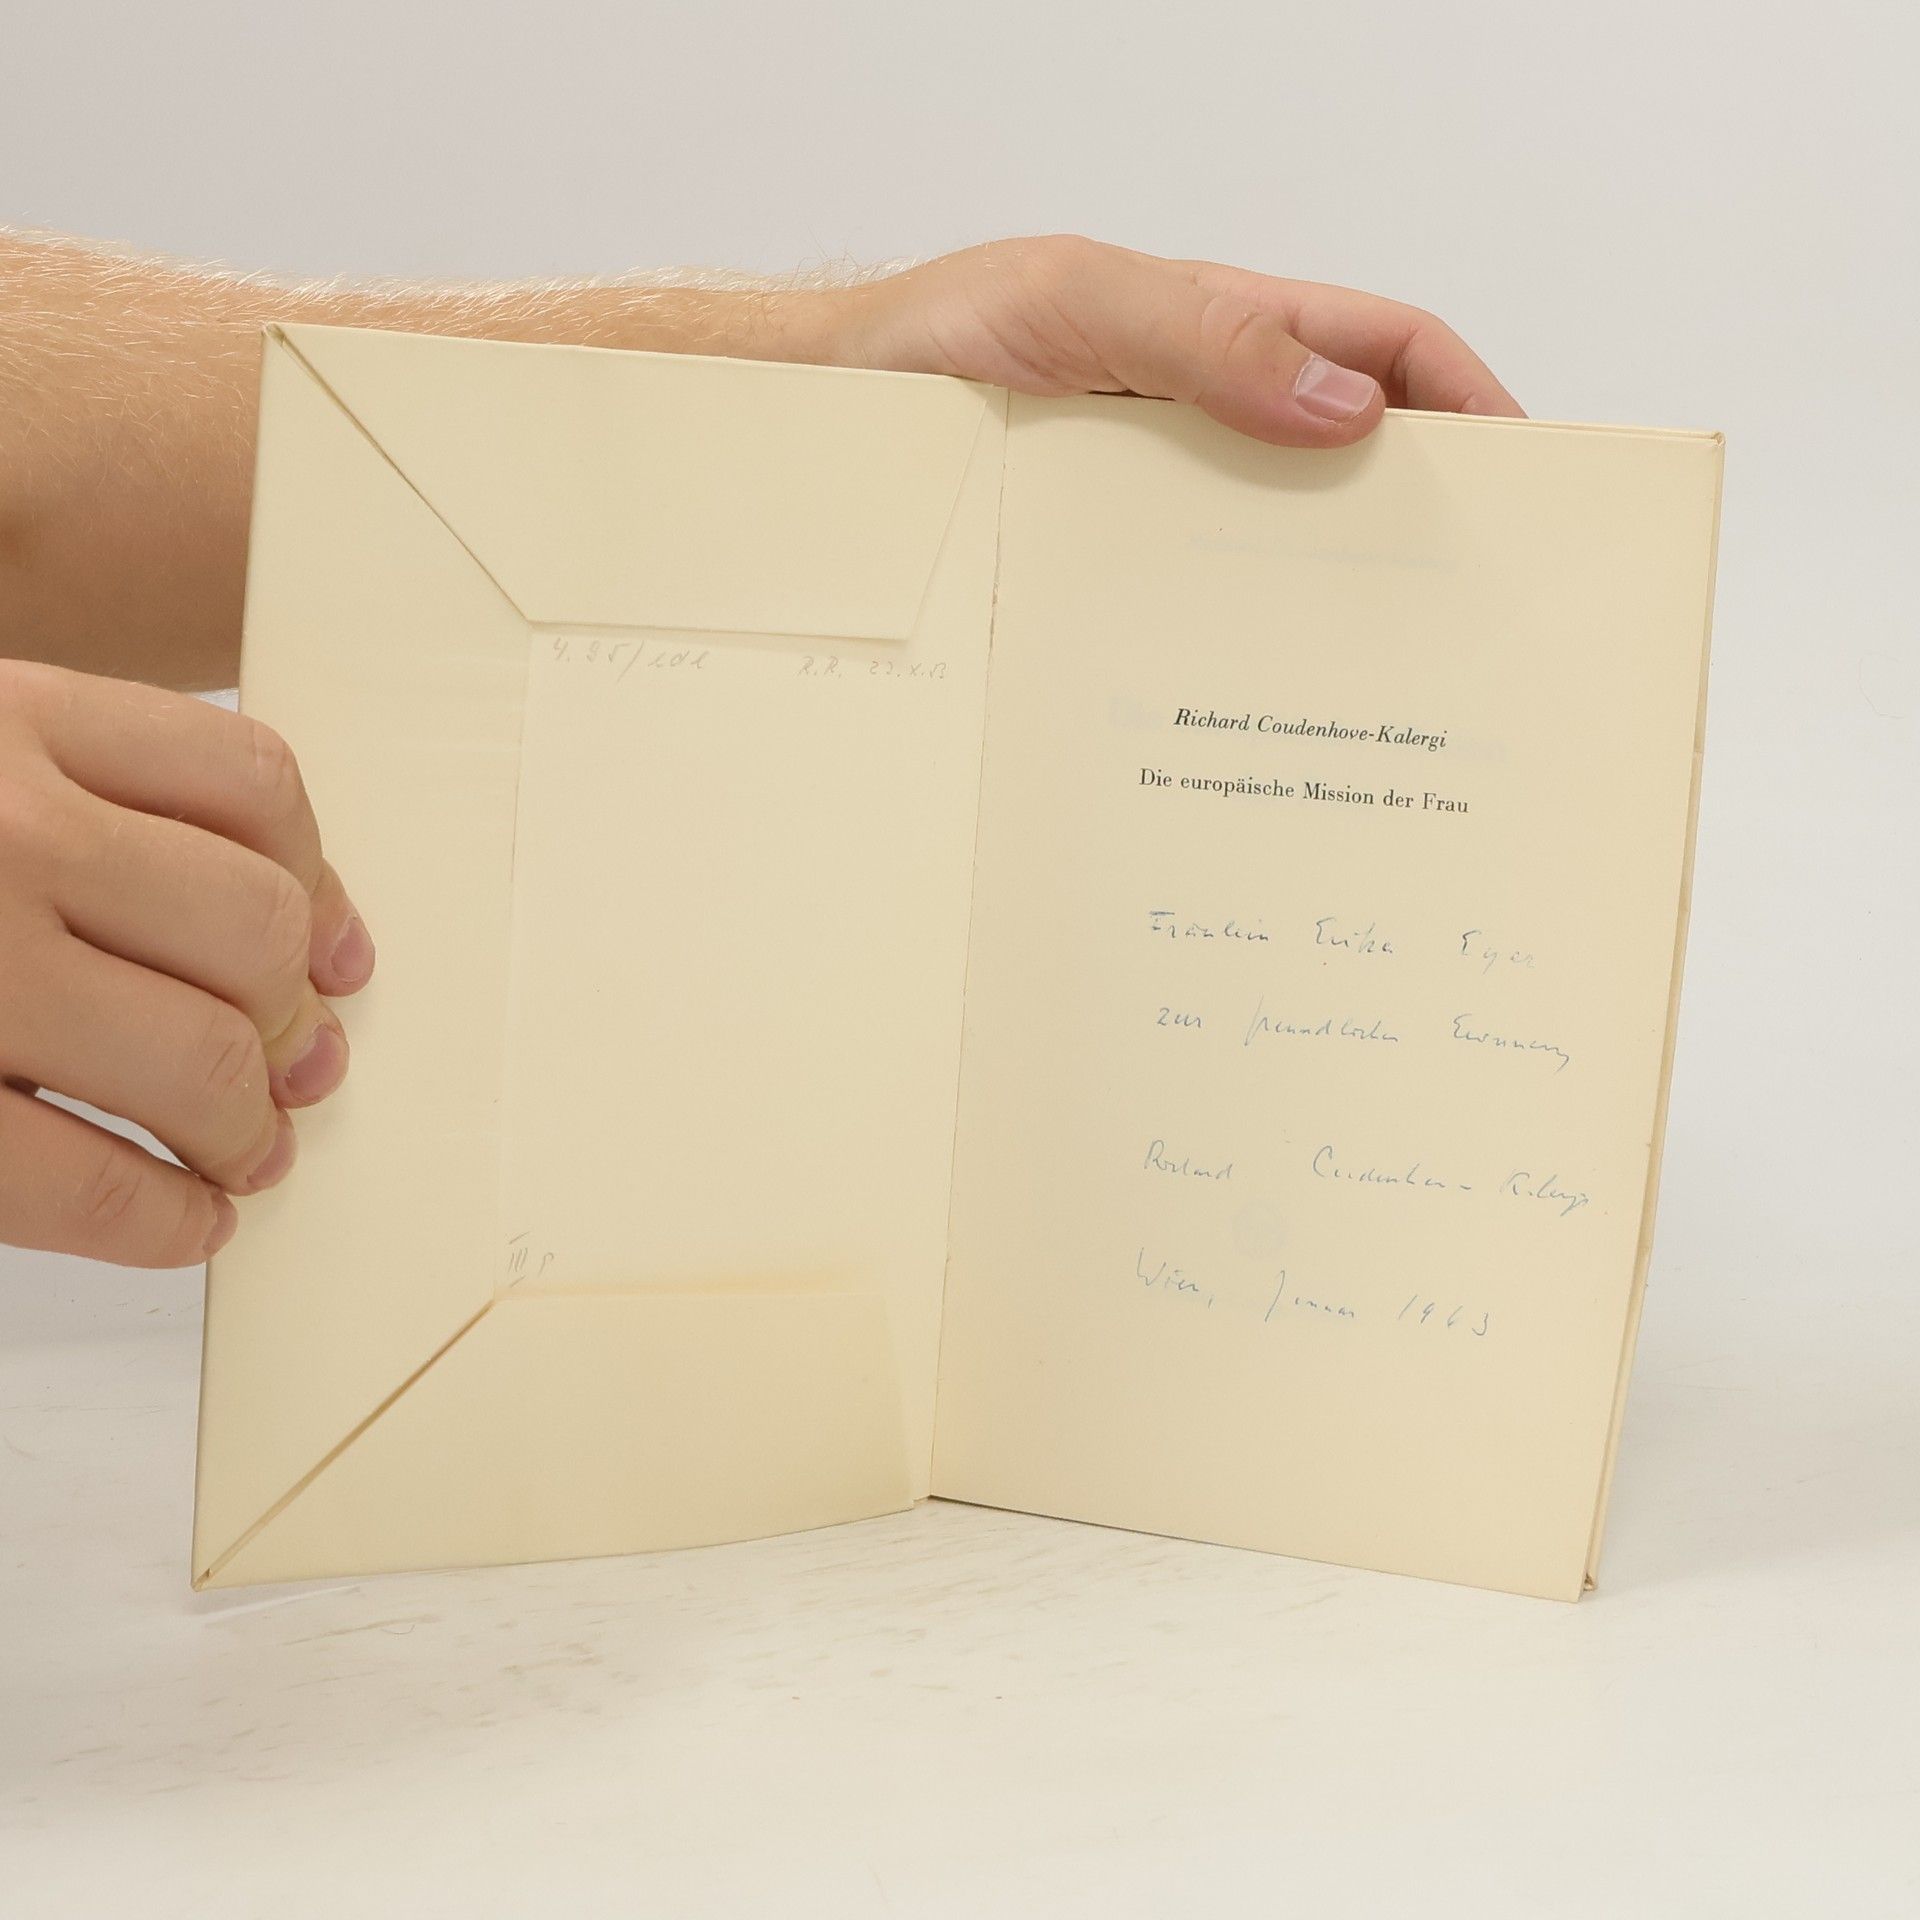 4.95/
R.R. 22.X.53
III
Richard Coudenhove-Kalergi
Die europäische Mission der Frau
Fräulein Erika Eger
zur freundlichen Erinnerung
Richard Coudenhove-Kalergi
Wien, Januar 1963